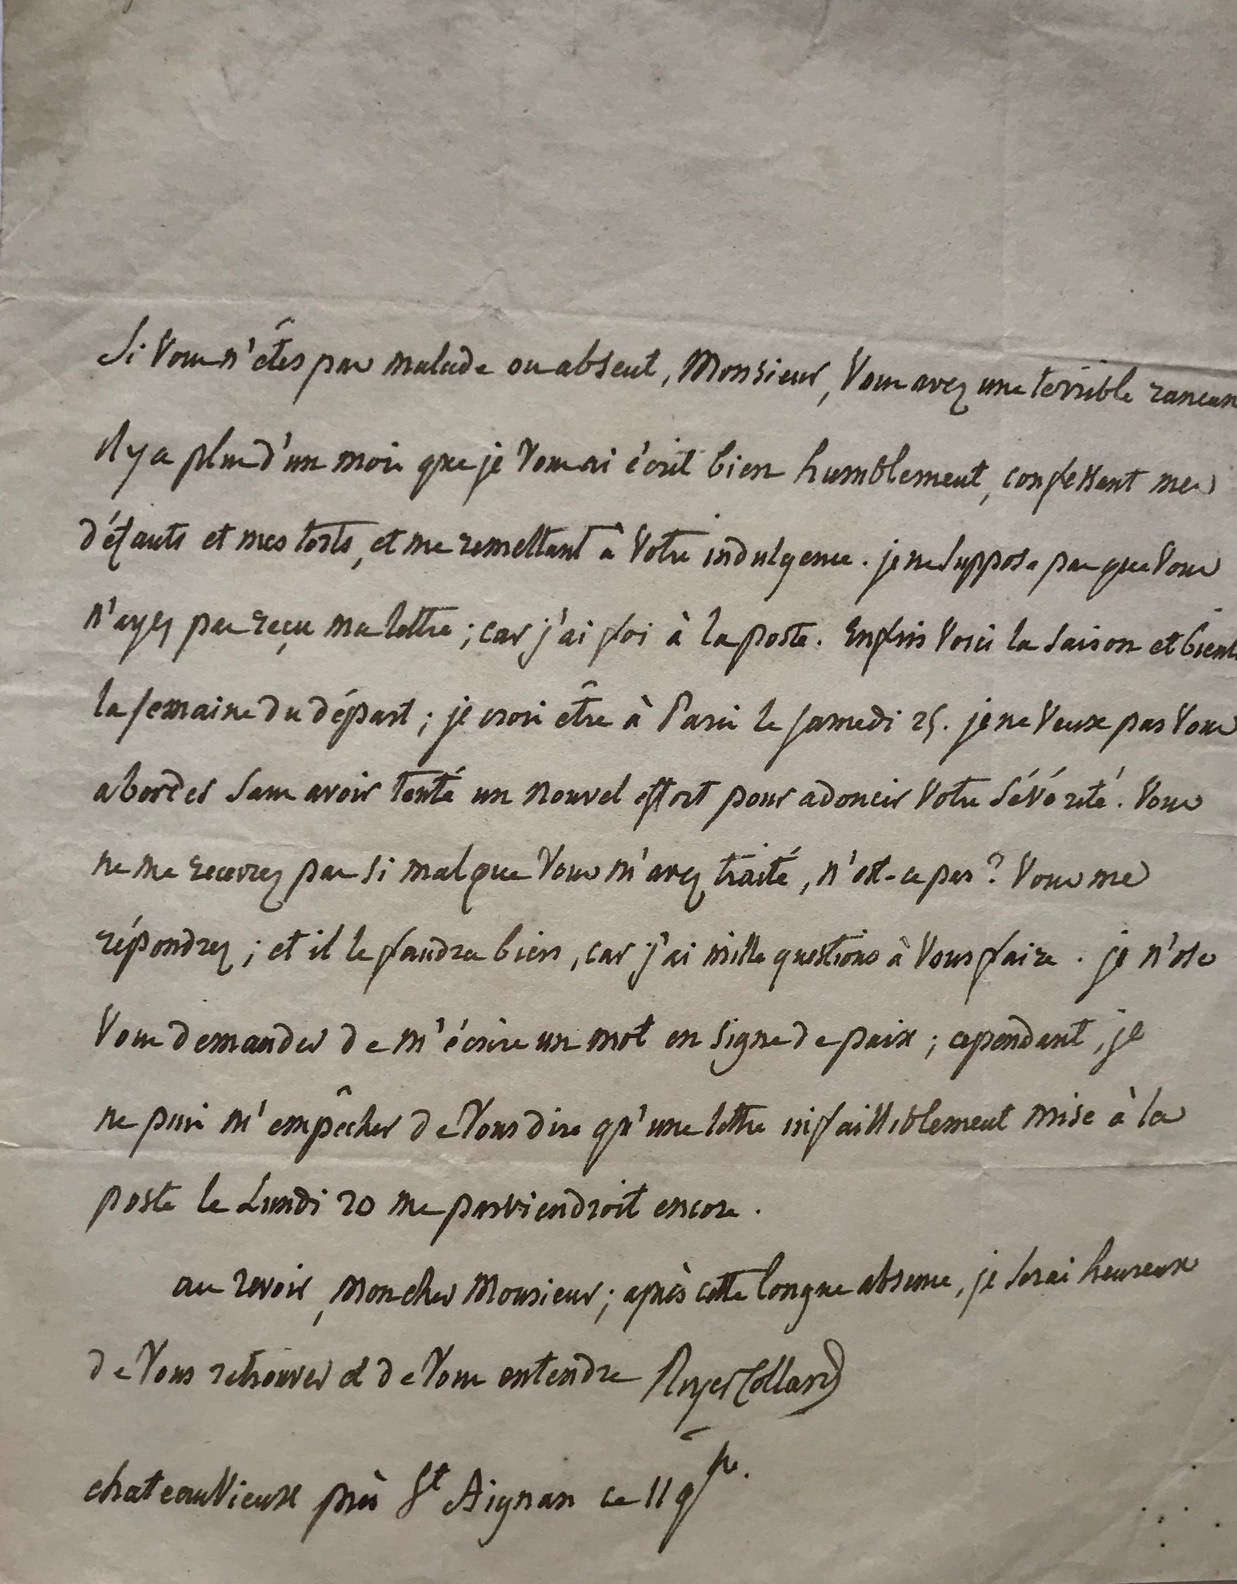 Si Vous n'êtes pas malade ou absent, Monsieur, Vous avez une terrible rancun
Il y a plus d'un mois que je Vous ai écrit bien humblement, confessant mes
défauts et mes torts, et me remettant à Votre indulgence. je ne suppose pas que Vous
n'ayez pas reçu ma lettre ; car j'ai foi à la poste. Enfin Voici la saison et bient
la semaine du départ ; je crois être à Paris le samedi 25. je ne Veux pas Vous
aborder sans avoir tenté un nouvel effort pour adoucir Votre sévérité. Vous
ne me recevrez pas si mal que Vous m'avez traité, n'est-ce pas ? Vous me
répondrez ; et il le faudra bien, car j'ai mille questions à Vous faire. je n'ose
Vous demander de m'écrire un mot en signe de paix ; cependant, je
ne puis m'empêcher de Vous dire qu'une lettre infailliblement mise à la
poste le Lundi 20 me parviendroit encore.
au revoir, Mon cher Monsieur ; après cette longue absence, je serai heureux
de Vous retrouver et de Vous entendre Royer Collard
chateauvieux près St Aignan ce 11 9bre.